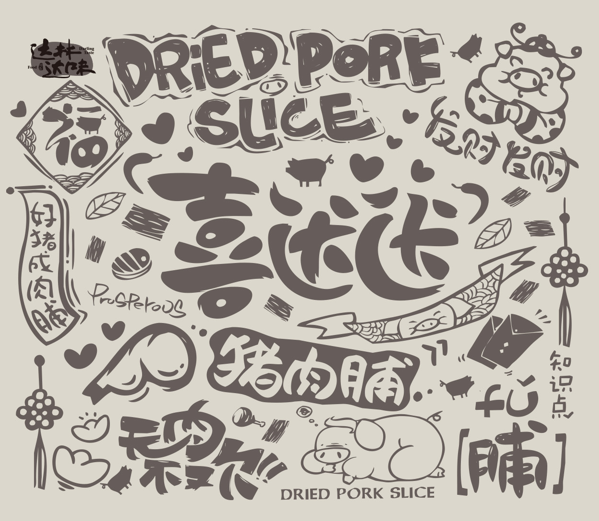 达林
达味
DRiED PORK
SLICE
福
发财发财
喜达达
好猪成肉脯
Prosperous
猪肉脯
知识点
fǔ
[脯]
无肉不欢!!
DRIED PORK SLICE